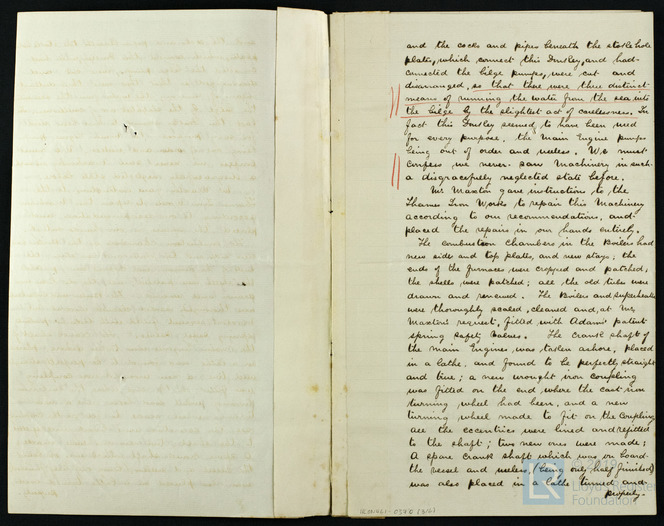 and the cocks and pipes beneath the stokehole
plates, which connect this Donkey, and had
connected the bilge pumps, were cut and
disarranged, so that there were three distinct
means of running the water from the sea into
the bilge by the slightest act of carelessness. In
fact this Donkey seemed to have been used
for every purpose, the Main Engine pumps
being out of order and useless. We must
confess we never saw Machinery in such
a disgracefully neglected state before.
Mr Maxton gave instructions to the
Thames Iron Works to repair this Machinery
according to our recommendations, and
placed the repairs in our hands entirely.
The combustion chambers in the Boilers had
new side and top plates, and new stays; the
ends of the furnaces were cropped and patched;
the shells were patched; all the old tubes were
drawn and renewed. The Boilers and superheater
were thoroughly scaled, cleaned and, at Mr
Maxton's request, fitted with Adams' patent
spring safety valves. The crank shaft of
the main Engines, was taken ashore, placed
in a lathe, and found to be perfectly straight
and true; a new wrought iron coupling
was fitted on the end where the cast iron
turning wheel had been, and a new
turning wheel made to fit on the coupling
all the eccentrics were lined and refitted
to the shaft; two new ones were made;
A spare crank shaft which was on board
the vessel and useless, (being only half finished)
was also placed in a lathe turned and
properly
Lloyd's Register
Foundation